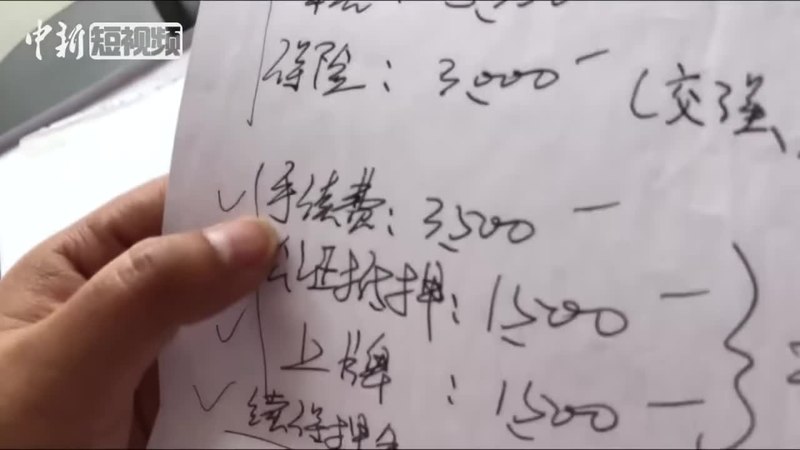 中新短视频
保险：3,000 —
(交强、
手续费：3,500 —
公证抵押：1,500 —
上牌：1,500 —
续保押金